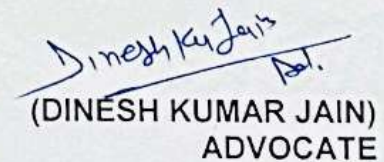 Dinesh Ku Jain
Adv.
(DINESH KUMAR JAIN)
ADVOCATE